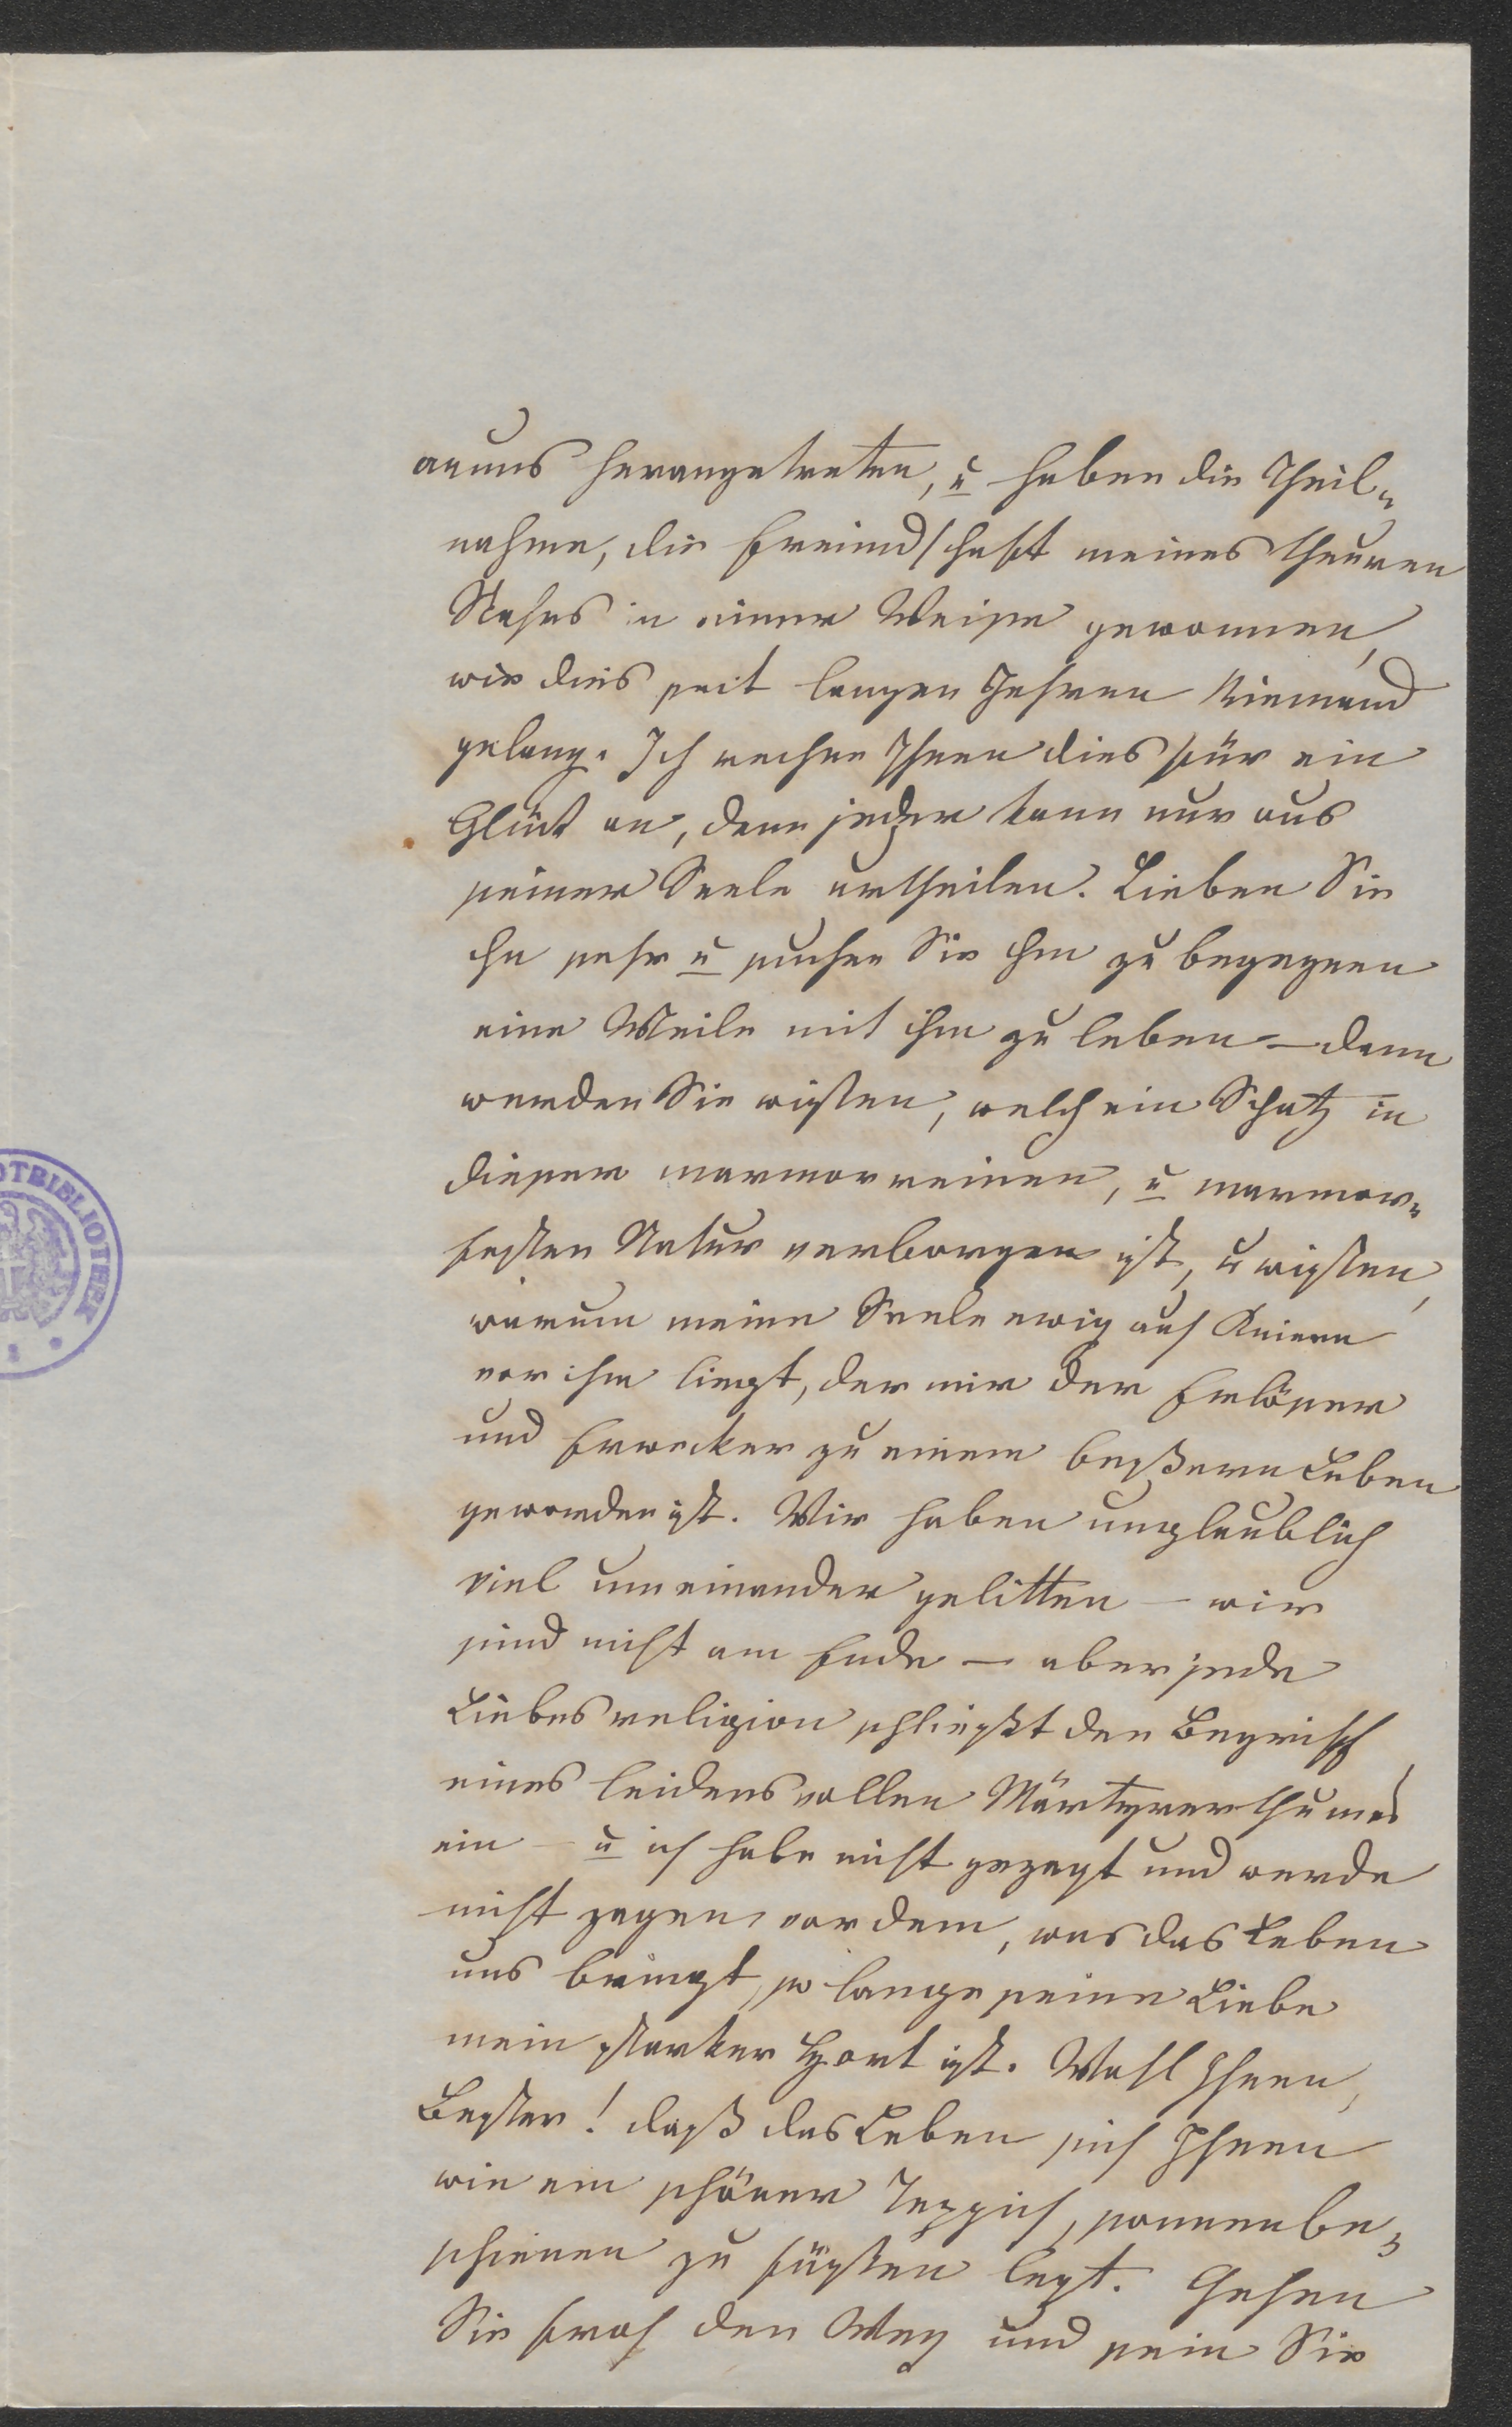 an uns herangetreten, u haben die Theil-
nahme, die Freundschaft meines theuren
Nahes in einer Weise gewonnen,
wie dies seit langen Jahren Niemand
gelang. Ich rechne Ihnen dies für ein
Glück an, denn jeder kann nur aus
seiner Seele urtheilen. Lieben Sie
ihn sehr u suchen Sie ihm zu begegnen
eine Weile mit ihm zu leben – dann
werden Sie wissen, welch ein Schatz in
dieser marmorreinen, u marmor-
festen Natur verborgen ist, u wissen,
warum meine Seele ewig auf Knieen
vor ihm liegt, der mir der Erlöser
und Erwecker zu einem beßeren Leben
geworden ist. Wir haben unglaublich
viel um einander gelitten – wir
sind nicht am Ende – aber jede
Liebesreligion schließt den Begriff
eines leidensvollen Märtyrerthumes
ein – u ich habe nicht gezagt und werde
nicht zagen vor dem, was das Leben
uns bringt, so lange seine Liebe
mein starker Hort ist. Wohl Ihnen,
Bester! daß das Leben sich Ihnen
wie ein schöner Teppich, sonnenbe-
schienen zu füßen legt. Gehen
Sie froh den Weg und sein Sie
OTBIBLIOTHEK